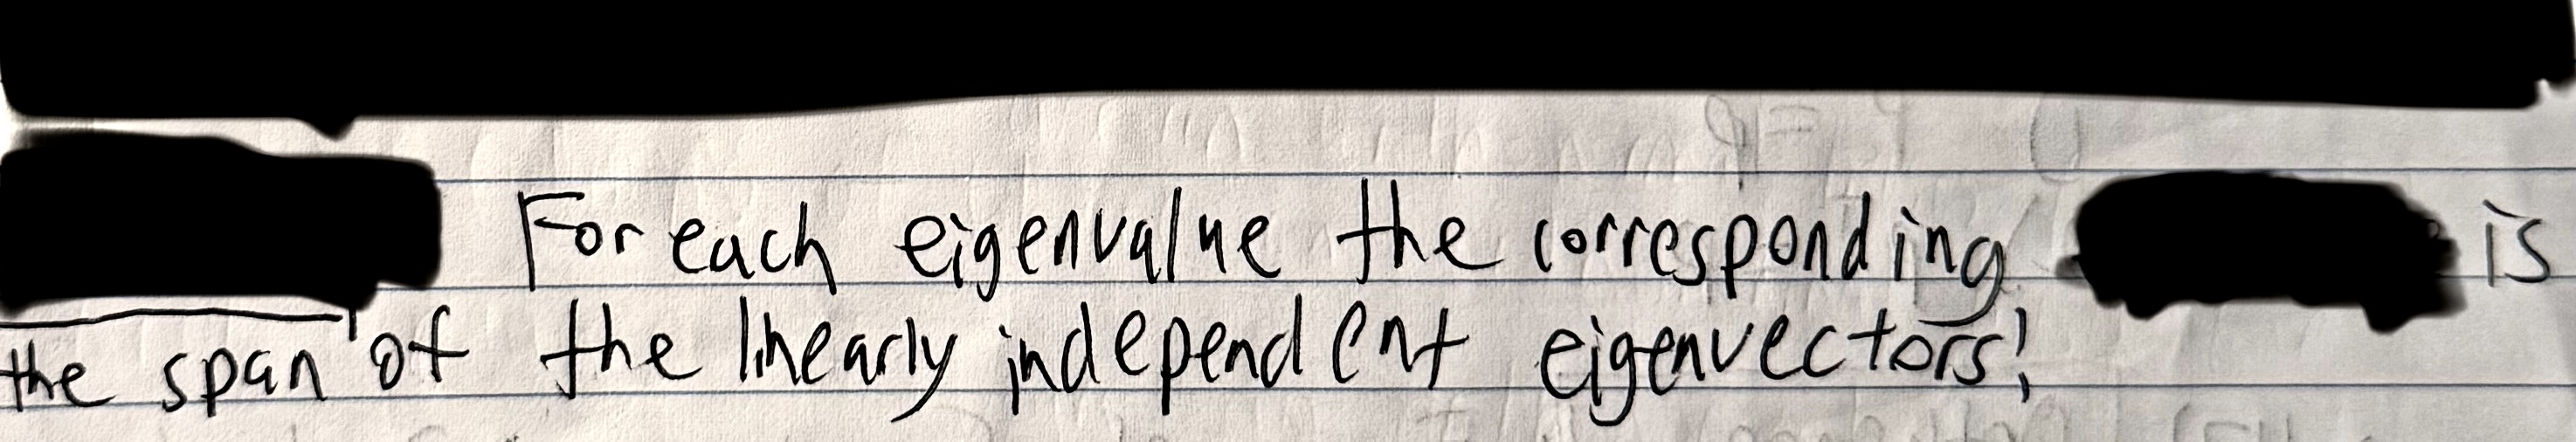 For each eigenvalue the corresponding is
the span of the linearly independent eigenvectors!